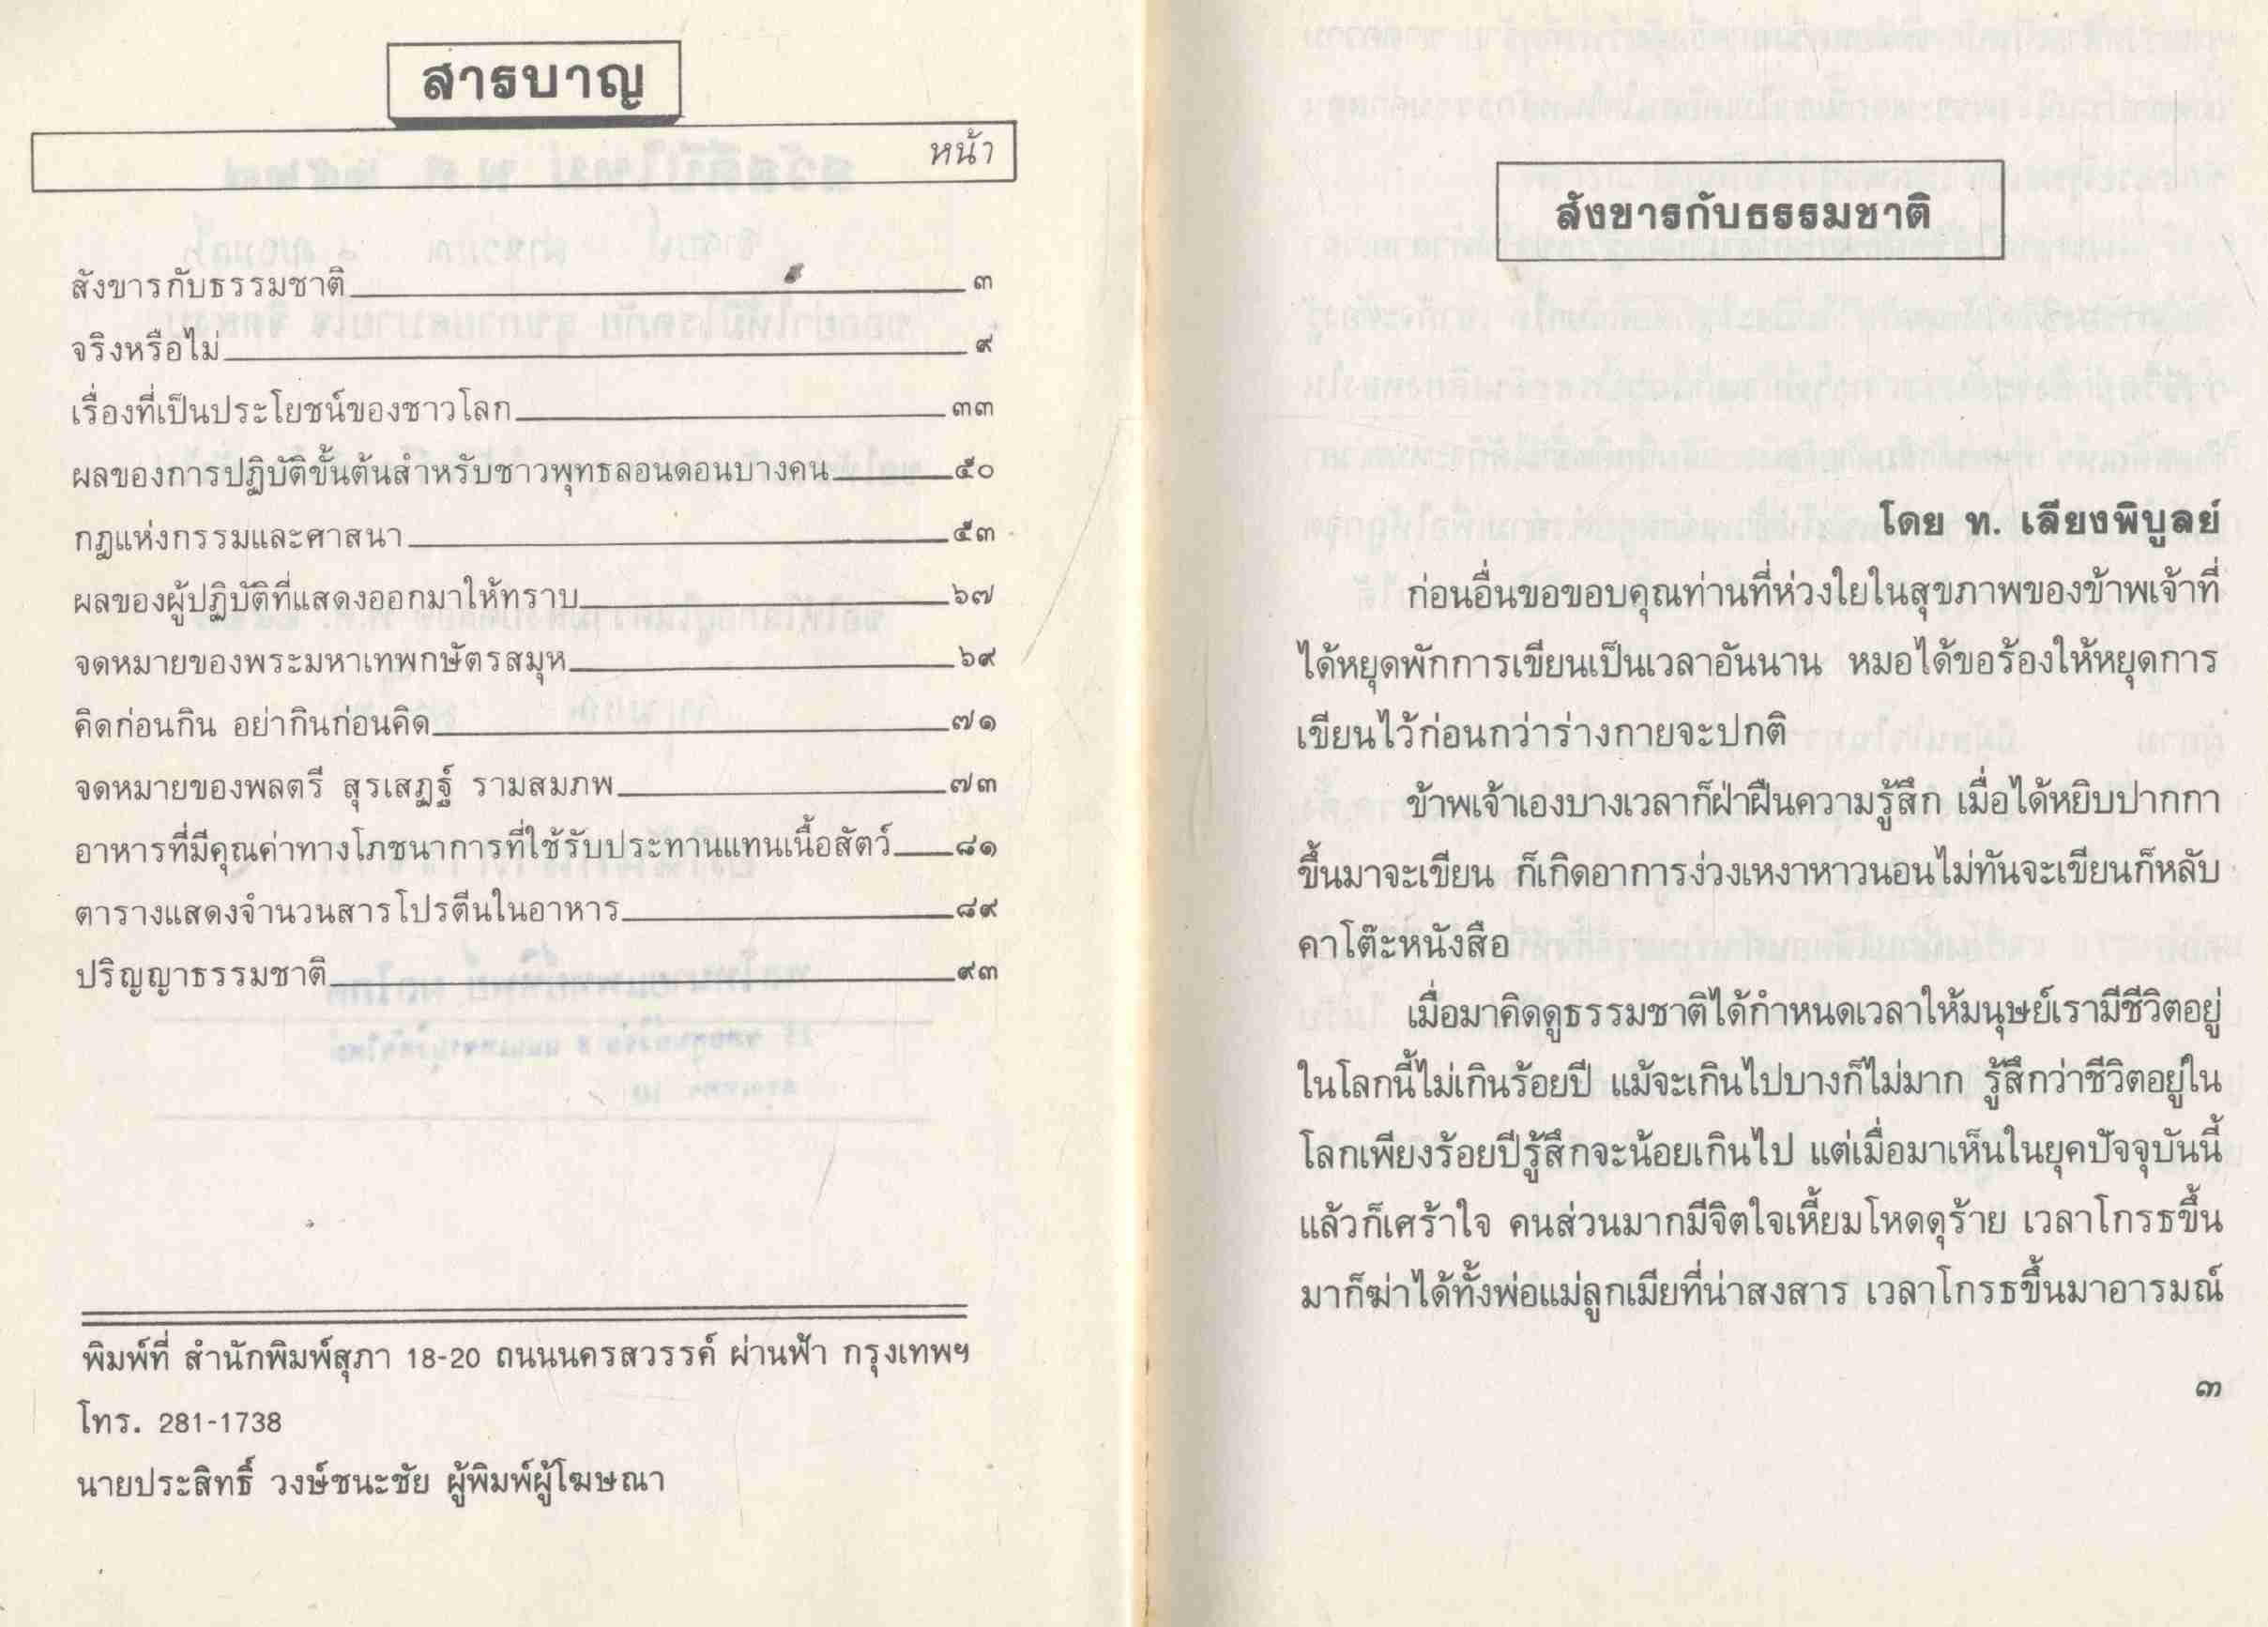 สารบาญ
หน้า
สังขารกับธรรมชาติ ๓
จริงหรือไม่ ๙
เรื่องที่เป็นประโยชน์ของชาวโลก ๓๓
ผลของการปฏิบัติขั้นต้นสำหรับชาวพุทธลอนดอนบางคน ๕๐
กฎแห่งกรรมและศาสนา ๕๓
ผลของผู้ปฏิบัติที่แสดงออกมาให้ทราบ ๖๗
จดหมายของพระมหาเทพกษัตรสมุห ๖๙
คิดก่อนกิน อย่ากินก่อนคิด ๗๑
จดหมายของพลตรี สุรเสฏฐ์ รามสมภพ ๗๓
อาหารที่มีคุณค่าทางโภชนาการที่ใช้รับประทานแทนเนื้อสัตว์ ๘๑
ตารางแสดงจำนวนสารโปรตีนในอาหาร ๘๙
ปริญญาธรรมชาติ ๙๓
พิมพ์ที่ สำนักพิมพ์สุภา 18-20 ถนนนครสวรรค์ ผ่านฟ้า กรุงเทพฯ
โทร. 281-1738
นายประสิทธิ์ วงษ์ชนะชัย ผู้พิมพ์ผู้โฆษณา
สังขารกับธรรมชาติ
โดย ท. เลียงพิบูลย์
ก่อนอื่นขอขอบคุณท่านที่ห่วงใยในสุขภาพของข้าพเจ้าที่
ได้หยุดพักการเขียนเป็นเวลาอันนาน หมอได้ขอร้องให้หยุดการ
เขียนไว้ก่อนกว่าร่างกายจะปกติ
ข้าพเจ้าเองบางเวลาก็ฝ่าฝืนความรู้สึก เมื่อได้หยิบปากกา
ขึ้นมาจะเขียน ก็เกิดอาการง่วงเหงาหาวนอนไม่ทันจะเขียนก็หลับ
คาโต๊ะหนังสือ
เมื่อมาคิดดูธรรมชาติได้กำหนดเวลาให้มนุษย์เรามีชีวิตอยู่
ในโลกนี้ไม่เกินร้อยปี แม้จะเกินไปบางก็ไม่มาก รู้สึกว่าชีวิตอยู่ใน
โลกเพียงร้อยปีรู้สึกจะน้อยเกินไป แต่เมื่อมาเห็นในยุคปัจจุบันนี้
แล้วก็เศร้าใจ คนส่วนมากมีจิตใจเหี้ยมโหดดุร้าย เวลาโกรธขึ้น
มาก็ฆ่าได้ทั้งพ่อแม่ลูกเมียที่น่าสงสาร เวลาโกรธขึ้นมาอารมณ์
๓